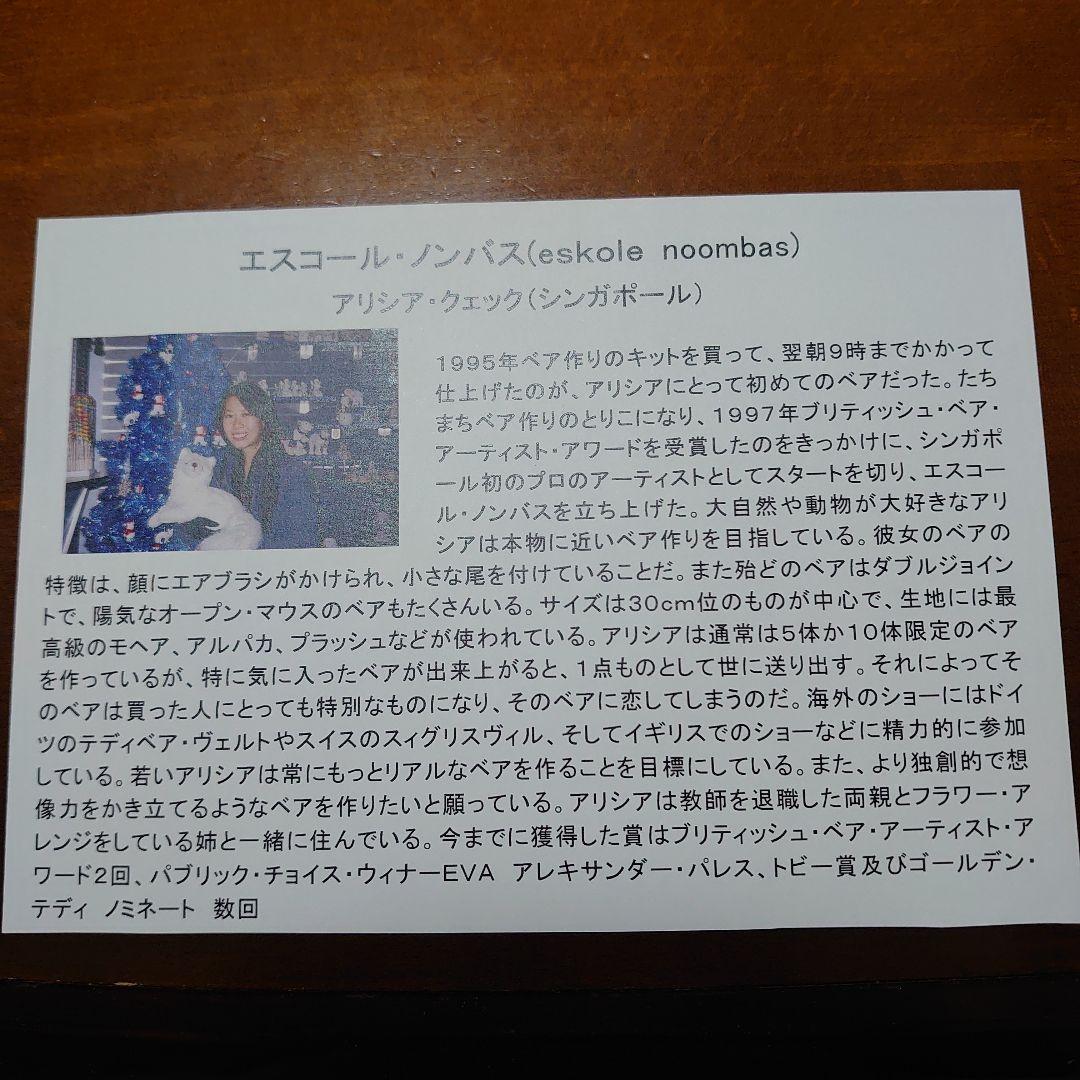 エスコール・ノンバス(eskole noombas)
アリシア・クェック(シンガポール)
1995年ベア作りのキットを買って、翌朝9時までかかって
仕上げたのが、アリシアにとって初めてのベアだった。たち
まちベア作りのとりこになり、1997年ブリティッシュ・ベア・
アーティスト・アワードを受賞したのをきっかけに、シンガポ
ール初のプロのアーティストとしてスタートを切り、エスコー
ル・ノンバスを立ち上げた。大自然や動物が大好きなアリ
シアは本物に近いベア作りを目指している。彼女のベアの
特徴は、顔にエアブラシがかけられ、小さな尾を付けていることだ。また殆どのベアはダブルジョイン
トで、陽気なオープン・マウスのベアもたくさんいる。サイズは30cm位のものが中心で、生地には最
高級のモヘア、アルパカ、プラッシュなどが使われている。アリシアは通常は5体か10体限定のベア
を作っているが、特に気に入ったベアが出来上がると、1点ものとして世に送り出す。それによってそ
のベアは買った人にとっても特別なものになり、そのベアに恋してしまうのだ。海外のショーにはドイ
ツのテディベア・ヴェルトやスイスのスィグリスヴィル、そしてイギリスでのショーなどに精力的に参加
している。若いアリシアは常にもっとリアルなベアを作ることを目標にしている。また、より独創的で想
像力をかき立てるようなベアを作りたいと願っている。アリシアは教師を退職した両親とフラワー・ア
レンジをしている姉と一緒に住んでいる。今までに獲得した賞はブリティッシュ・ベア・アーティスト・ア
ワード2回、パブリック・チョイス・ウィナーEVA アレキサンダー・パレス、トビー賞及びゴールデン・
テディ ノミネート 数回